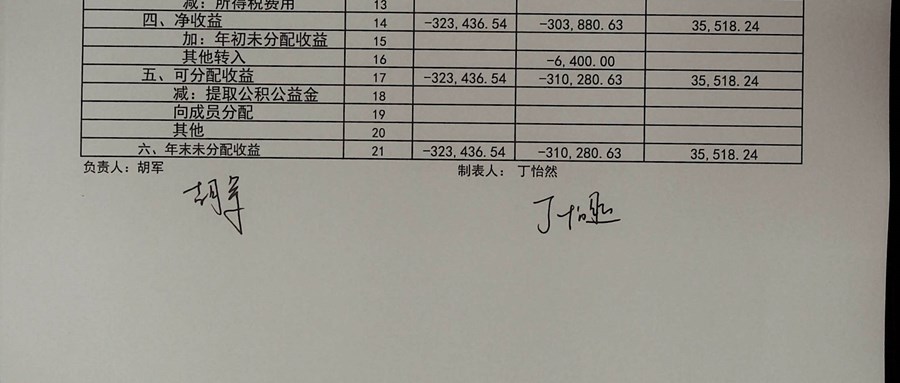 减：所得税费用 13
四、净收益 14 -323,436.54 -303,880.63 35,518.24
加：年初未分配收益 15
其他转入 16 -6,400.00
五、可分配收益 17 -323,436.54 -310,280.63 35,518.24
减：提取公积公益金 18
向成员分配 19
其他 20
六、年末未分配收益 21 -323,436.54 -310,280.63 35,518.24
负责人：胡军 制表人： 丁怡然
胡军 丁怡然